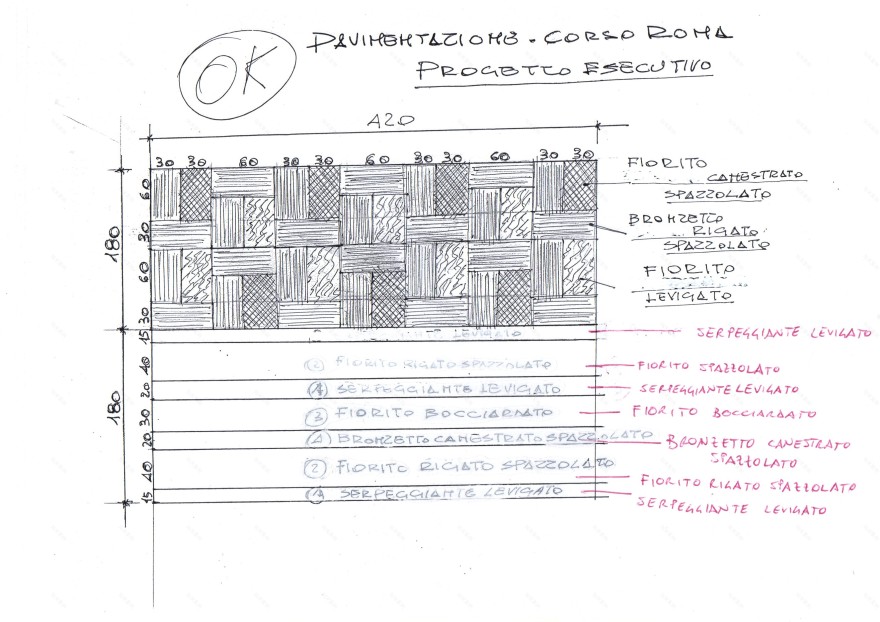 OK
PAVIMENTAZIONE. CORSO ROMA
PROGETTO ESECUTIVO
420
30 30 60 30 30 60 30 30 60 30 30
180
60
30
60
30
FIORITO
CANESTRATO
SPAZZOLATO
BRONZETTO
RIGATO
SPAZZOLATO
FIORITO
LEVIGATO
180
15 LEVIGATO SERPEGGIANTE LEVIGATO
40 2 FIORITO RIGATO SPAZZOLATO FIORITO SPAZZOLATO
20 1 SERPEGGIANTE LEVIGATO SERPEGGIANTE LEVIGATO
30 3 FIORITO BOCCIARDATO FIORITO BOCCIARDATO
20 BRONZETTO CANESTRATO SPAZZOLATO BRONZETTO CANESTRATO
SPAZZOLATO
40 2 FIORITO RIGATO SPAZZOLATO FIORITO RIGATO SPAZZOLATO
15 1 SERPEGGIANTE LEVIGATO SERPEGGIANTE LEVIGATO